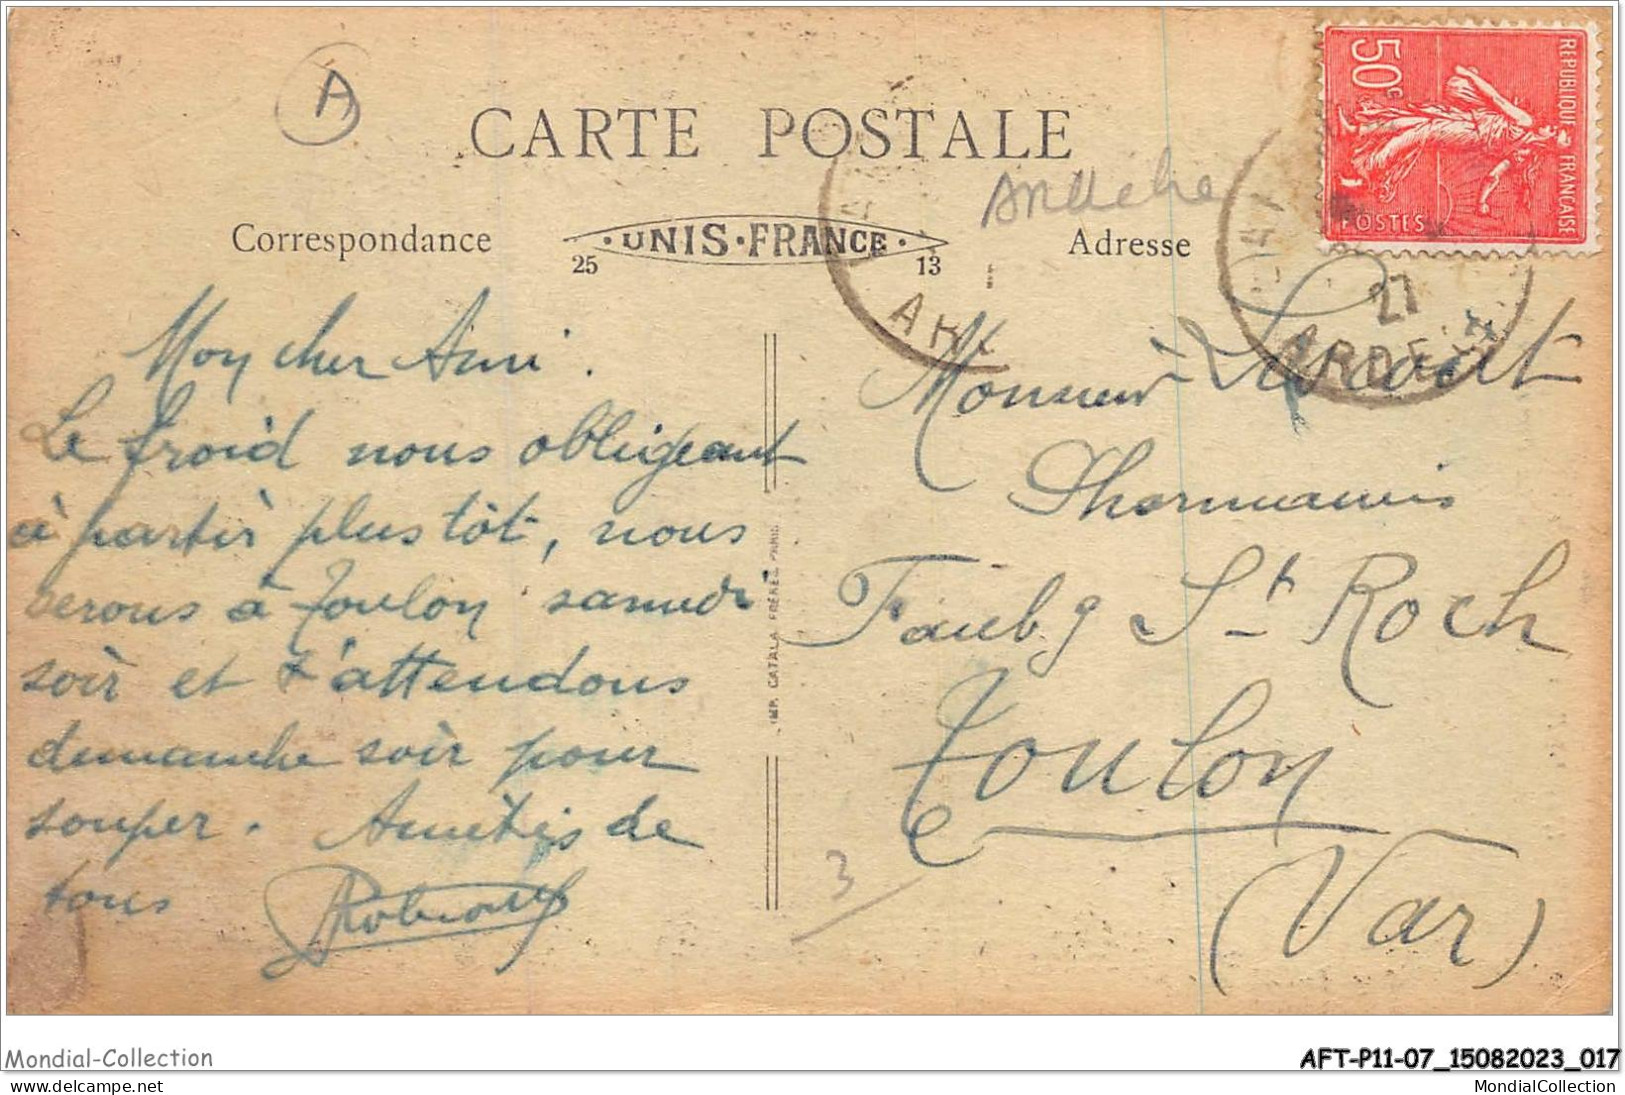 A
CARTE POSTALE
Ardeche
50c
REPUBLIQUE FRANÇAISE
POSTES
Correspondance
25 · UNIS · FRANCE · 13
Adresse
27
ARDECH
Mon cher Ami.
Le froid nous obligeant
à partir plus tôt, nous
serons à Toulon samedi
soir et t'attendons
dimanche soir pour
souper. Amitiés de
tous
IMP. CATALA FRÈRES, PARIS
Monsieur
Pharmacien
Faubg St Roch
Toulon
(Var)
3
Mondial-Collection
AFT-P11-07_15082023_017
delcampe.net
MondialCollection